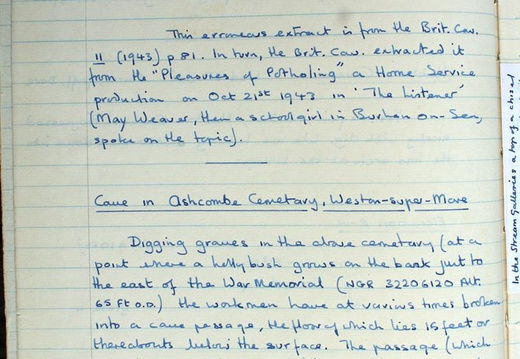 This erroneous extract is from the Brit. Cav.
11 (1943) p 81. In turn, the Brit. Cav. extracted it
from the "Pleasures of Potholing" a Home Service
production on Oct 21st 1943 in 'The Listener'
(May Weaver, then a schoolgirl in Burnham on-Sea,
spoke on the topic).
Cave in Ashcombe Cemetary, Weston-super-Mare
Digging graves in the above cemetary (at a
point where a holly bush grows on the bank just to
the east of the War Memorial (NGR 32206120 Alt.
65 Ft O.D.) the workmen have at various times broken
into a cave passage, the floor of which lies 15 feet or
thereabouts below the surface. The passage (which
In the Stream Galleries atop of a chisel